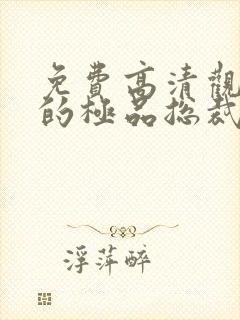 免費高清觀
的極品总裁
浮萍醉